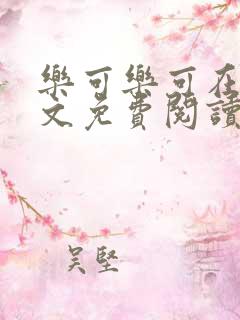 樂可樂可在
文免費閱讀
吴堅